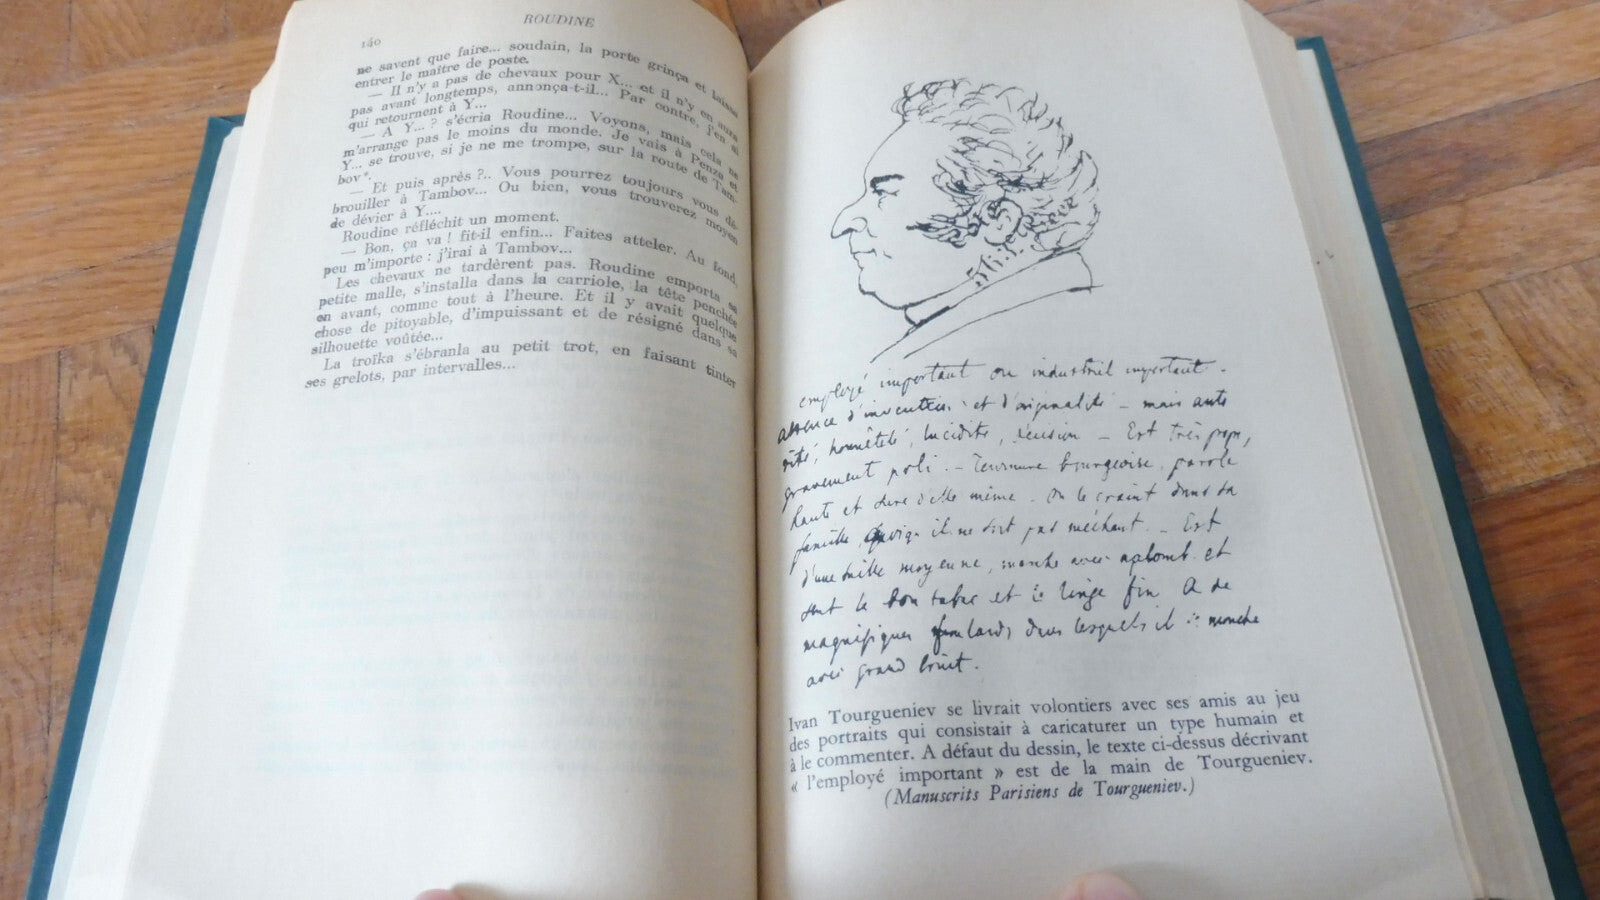 ROUDINE
140
ne savent que faire... soudain, la porte grinça et laissa
entrer le maître de poste.
— Il n'y a pas de chevaux pour X... et il n'y en aura
pas avant longtemps, annonça-t-il... Par contre, j'en ai
qui retournent à Y...
— A Y... ? s'écria Roudine... Voyons, mais cela ne
m'arrange pas le moins du monde. Je vais à Penza et
Y... se trouve, si je ne me trompe, sur la route de Tam-
bov*.
— Et puis après ?.. Vous pourrez toujours vous dé-
brouiller à Tambov... Ou bien, vous trouverez moyen
de dévier à Y....
Roudine réfléchit un moment.
— Bon, ça va ! fit-il enfin... Faites atteler. Au fond,
peu m'importe : j'irai à Tambov...
Les chevaux ne tardèrent pas. Roudine emporta sa
petite malle, s'installa dans la carriole, la tête penchée
en avant, comme tout à l'heure. Et il y avait quelque
chose de pitoyable, d'impuissant et de résigné dans sa
silhouette voûtée...
La troïka s'ébranla au petit trot, en faisant tinter
ses grelots, par intervalles...
employé important ou industriel important.
absence d'invention et d'originalité — mais
honnêteté, lucidité, décision — Est très
gravement poli. — Tournure bourgeoise, parole
haute et d'elle même. On le craint dans sa
famille, il ne soit pas méchant. — Est
d'une taille moyenne, marche avec aplomb et
sent le bon tabac et le linge fin A de
magnifiques foulards dans lesquels il se mouche
avec grand bruit.
Ivan Tourgueniev se livrait volontiers avec ses amis au jeu
des portraits qui consistait à caricaturer un type humain et
à le commenter. A défaut du dessin, le texte ci-dessus décrivant
« l'employé important » est de la main de Tourgueniev.
(Manuscrits Parisiens de Tourgueniev.)